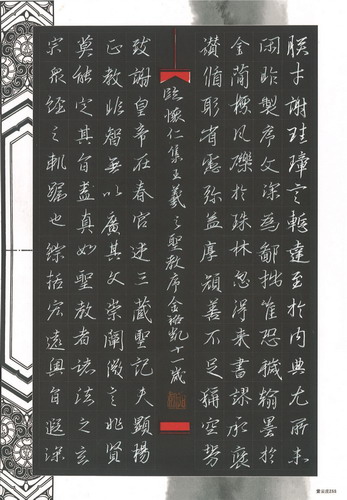 朕才謝珪璋言慙達至於內典尤所未
閑昨製序文深為鄙拙唯恐穢翰墨於
金簡標瓦礫於珠林忽得來書謬承褒
讚循躬省慮彌益厚顏善不足稱空勞
臨懷仁集王羲之聖教序金裕凱十一歲
致謝皇帝在春宮述三藏聖記夫顯揚
正教非智無以廣其文崇闡微言非賢
莫能定其旨蓋真如聖教者諸法之玄
宗眾經之軌躅也綜括宏遠奧旨遐深